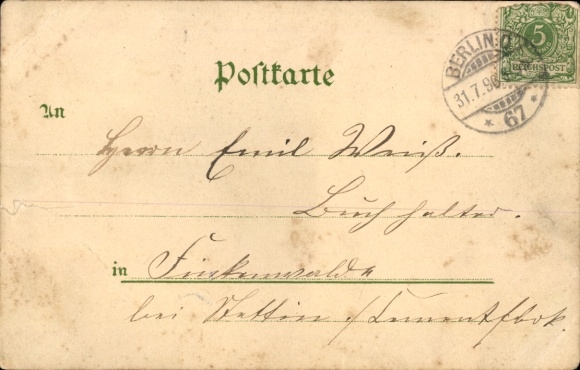 5
REICHSPOST
BERLIN
31.7.96
* 67 *
Postkarte
An
Herrn Emil Weiß.
Buchhalter.
in Finkenwalde
bei Stettin